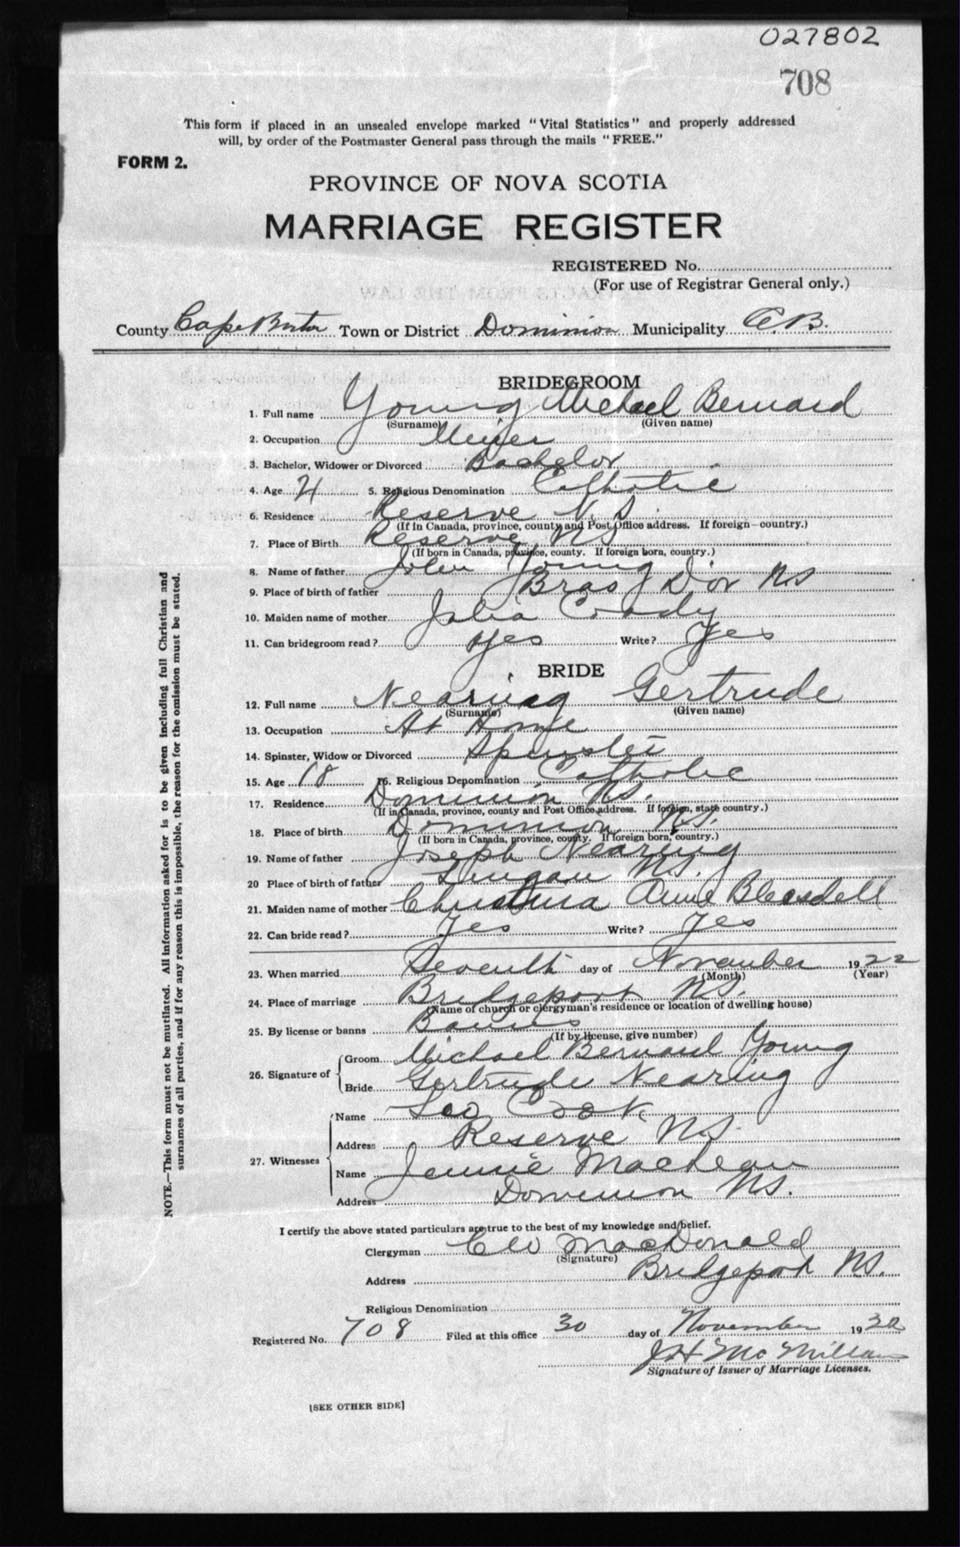 027802
708
This form if placed in an unsealed envelope marked "Vital Statistics" and properly addressed
will, by order of the Postmaster General pass through the mails "FREE."
FORM 2.
PROVINCE OF NOVA SCOTIA
MARRIAGE REGISTER
REGISTERED No.
(For use of Registrar General only.)
County Cape Breton Town or District Dominion Municipality C.B.
BRIDEGROOM
1. Full name Young Michael Bernard
(Surname) (Given name)
2. Occupation Miner
3. Bachelor, Widower or Divorced Bachelor
4. Age 21 5. Religious Denomination Catholic
6. Residence Reserve N.S.
(If in Canada, province, county and Post Office address. If foreign—country.)
7. Place of Birth Reserve NS
(If born in Canada, province, county. If foreign born, country.)
8. Name of father John Young
9. Place of birth of father Bras D'or NS
10. Maiden name of mother Julia Coady
11. Can bridegroom read? Yes Write? Yes
BRIDE
12. Full name Nearing Gertrude
(Surname) (Given name)
13. Occupation At Home
14. Spinster, Widow or Divorced Spinster
15. Age 18 16. Religious Denomination Catholic
17. Residence Dominion NS.
(If in Canada, province, county and Post Office address. If foreign, state country.)
18. Place of birth Dominion NS.
(If born in Canada, province, county. If foreign born, country.)
19. Name of father Joseph Nearing
20 Place of birth of father Lingan NS.
21. Maiden name of mother Christina Anne Bleasdell
22. Can bride read? Yes Write? Yes
23. When married Seventh day of November 1922
(Month) (Year)
24. Place of marriage Bridgeport NS.
(Name of church or clergyman's residence or location of dwelling house)
25. By license or banns Banns
(If by license, give number)
26. Signature of Groom Michael Bernard Young
Bride Gertrude Nearing
27. Witnesses Name Leo Cook
Address Reserve NS
Name Jennie MacLean
Address Dominion NS.
I certify the above stated particulars are true to the best of my knowledge and belief.
Clergyman MacDonald
(Signature)
Address Bridgeport NS.
Religious Denomination
Registered No. 708 Filed at this office 30 day of November 19
J H McMillan
Signature of Issuer of Marriage Licenses.
[SEE OTHER SIDE]
NOTE.—This form must not be mutilated. All information asked for is to be given including full Christian and
surnames of all parties, and if for any reason this is impossible, the reason for the omission must be stated.